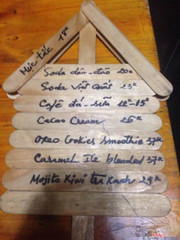 Mực tắc 18k
Soda dâu - đào 20k
Soda Việt Quất 25k
Café đá - sữa 12k-15k
Cacao Cream 25k
Oreo Cookies smoothie 37k
Caramel Ice blended 37k
Mojito Kiwi trà xanh 29k